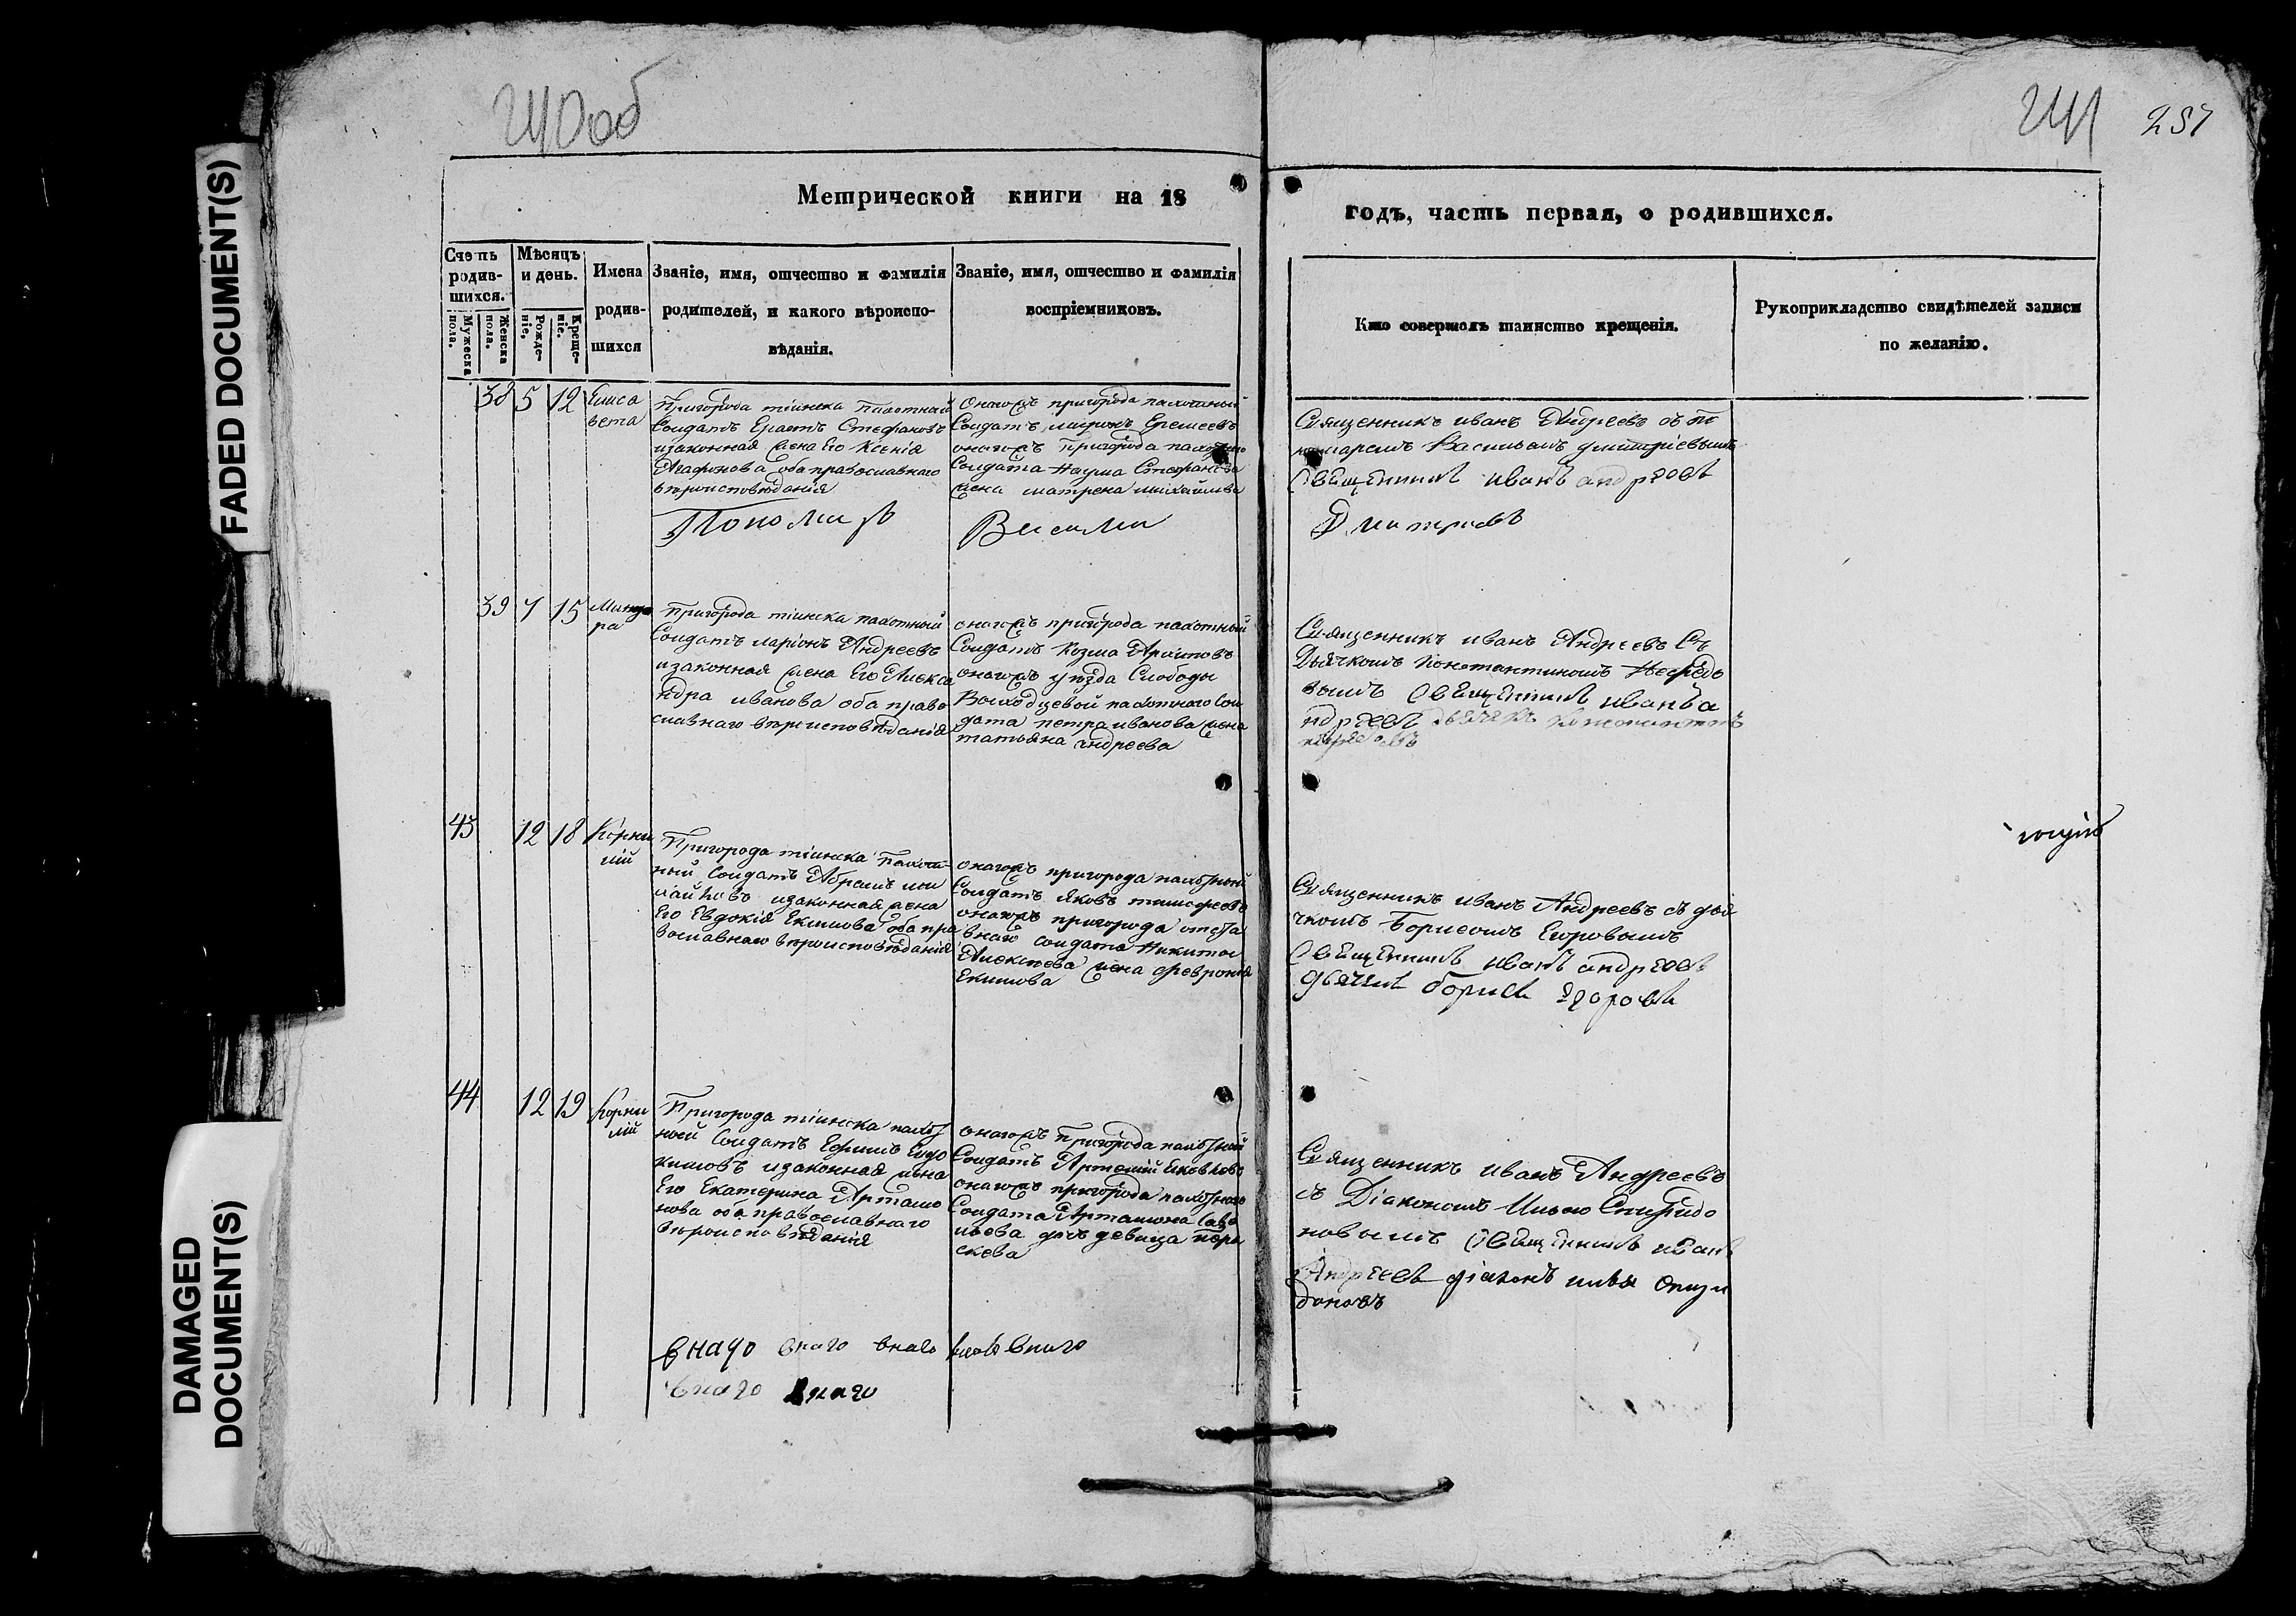 об
257
Метрической книги на 18
годъ, часть первая, о родившихся.
Счетъ родив-
шихся.
Мужеска
пола.
Женска
пола.
Мѣсяцъ
и день.
Рожде-
ніе.
Креще-
ніе.
Имена
родив-
шихся
Званіе, имя, отчество и фамилія
родителей, и какого вѣроиспо-
вѣданія.
Званіе, имя, отчество и фамилія
воспріемниковъ.
Кто совершалъ таинство крещенія.
Рукоприкладство свидѣтелей записи
по желанію.
38 5 12 Елиса
вета
Пригорода тіинска пахотный
Солдатъ Ерастъ Стефановъ
изаконная жена Его Ксенія
Агафонова оба православнаго
вѣроисповѣданія
Пономарь
онагожъ пригорода пахотный
Солдатъ миронъ Еремеевъ
онагожъ Пригорода пахотнаго
Солдата Наума Стефанова
жена матрена михайлова
Васили
Священникъ иванъ Андреевъ съ по
номаремъ Васильемъ дмитріевымъ
Священникъ иванъ андреевъ
Дмитриевъ
39 7 15
ра
Пригорода тіинска пахотный
Солдатъ ларіонъ Андреевъ
изаконная жена Его Алекса
ндра иванова оба право
славнаго вѣроисповѣданія
онагожъ пригорода пахотный
Солдатъ Козма Архиповъ
онагожъ уѣзда Слободы
Выходцевой пахотнаго Сол
дата петра иванова жена
татьяна андреева
Священникъ иванъ Андреевъ Съ
Дьячкомъ Константиномъ Нефедо
вымъ Священникъ иванъ а
ндреевъ дьячекъ Константинъ
нефедовъ
43 12 18 Корни
лій
Пригорода тіинска Пахот-
ный Солдатъ Абрамъ
изаконная жена
Его Евдокія Екимова оба пра
вославнаго вѣроисповѣданія
онагожъ пригорода пахотный
Солдатъ Яковъ тимофеевъ
онагожъ пригорода отста
внаго солдата Никиты
Алексѣева жена феврония
Екимова
Священникъ иванъ Андреевъ съ дья
чкомъ Борисомъ Егоровымъ
Священникъ иванъ андреевъ
дьячекъ борисъ Егоровъ
44 12 19 Корни
лій
Пригорода тіинска пахот
ной Солдатъ Ефимъ Евдо
кимовъ изаконная жена
Его Екатерина Артамо
нова оба православнаго
вѣроисповѣданія
онагожъ Пригорода пахотный
Солдатъ Артемій Яковлевъ
онагожъ пригорода пахотнаго
Солдата Артамона Саве
льева дочь девица пара
скева
Священникъ иванъ Андреевъ
съ Діакономъ Ильею Спиридо
новымъ Священникъ иванъ
Андреевъ діаконъ илья Спири
доновъ
внаго внаго внаго
внаго внаго
FADED DOCUMENT(S)
DAMAGED
DOCUMENT(S)